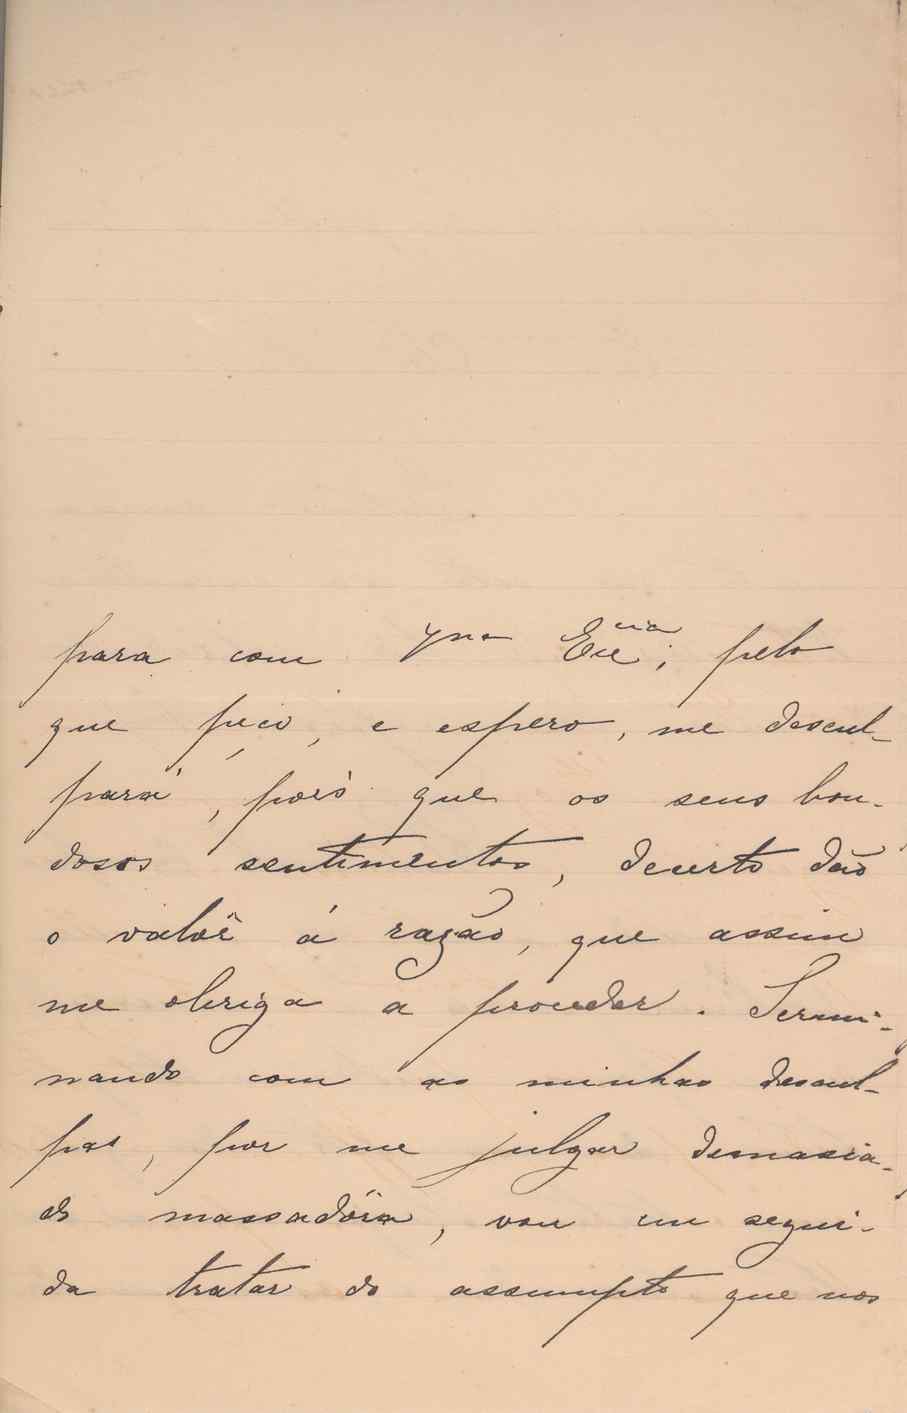 para com V.na Exc.ia; pelo
que peço, e espero, me descul-
pará, pois que os seus bon-
dosos sentimentos, decerto dão
o valôr á razão, que assim
me obriga a proceder. Termi-
nando com as minhas descul-
pas, por me julgar demasia-
do massadôra, vou em segui-
da tratar do assumpto que nos